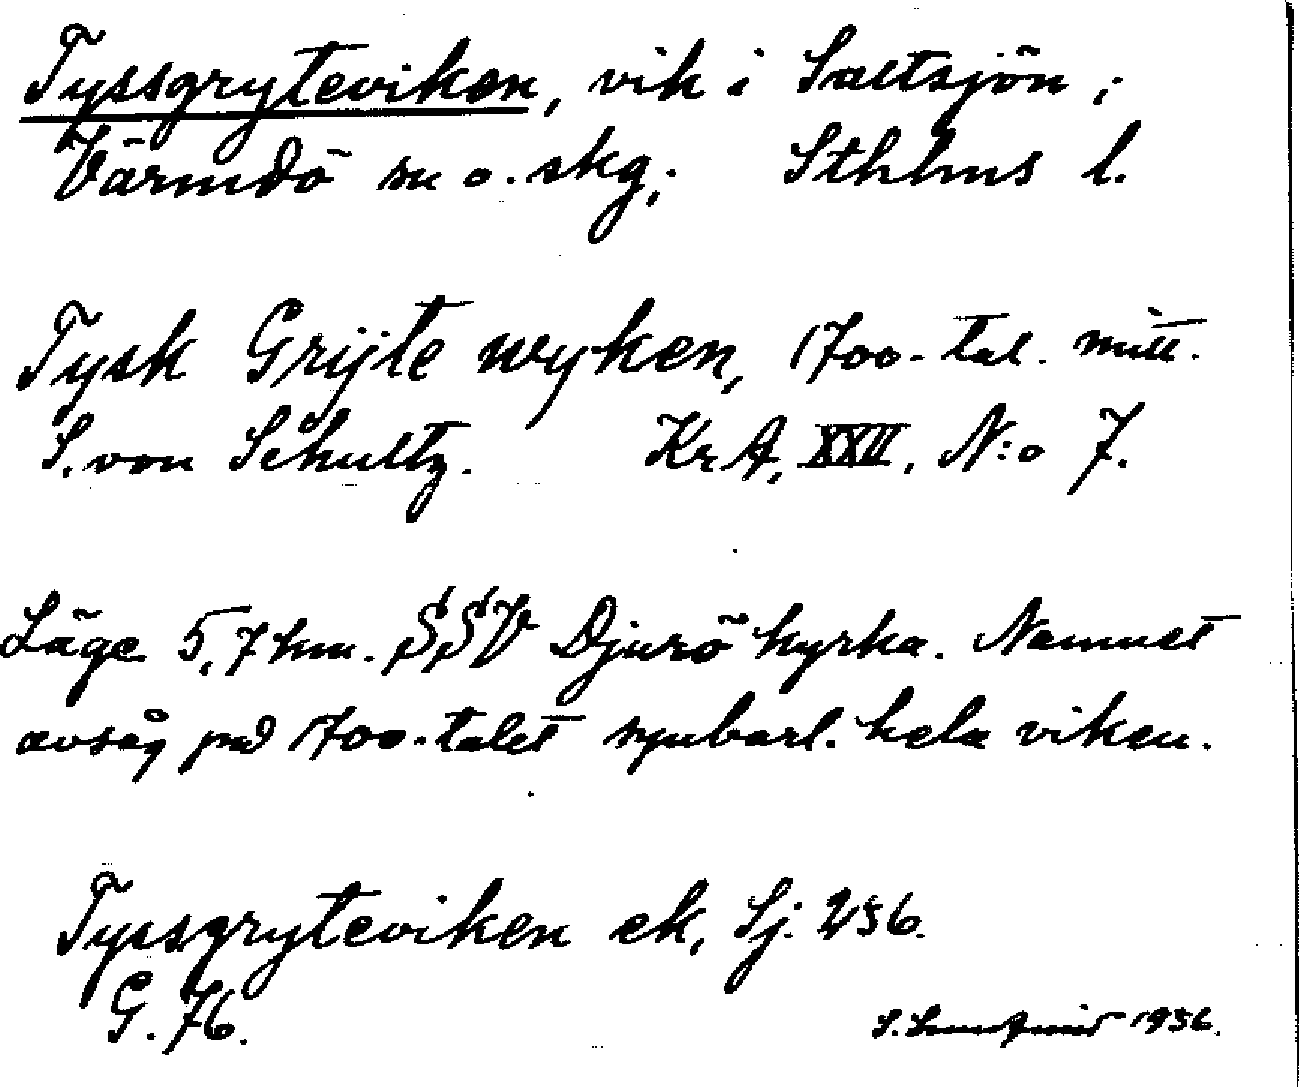 Tyssgryteviken, vik i Saltsjön,;
Värmdö sn o. skg,. Sthlms l.
Tysk Grÿte wyken, 1700-tal. mitt.
S. von Schultz. KrA, XXII, N:o 7.
Läge 5,7 km. SSV Djurö kyrka. Namnet
avsåg på 1700-talet synbarl. hela viken.
Tyssgryteviken ek, Sj. 256.
G. 76.
S. 1956.